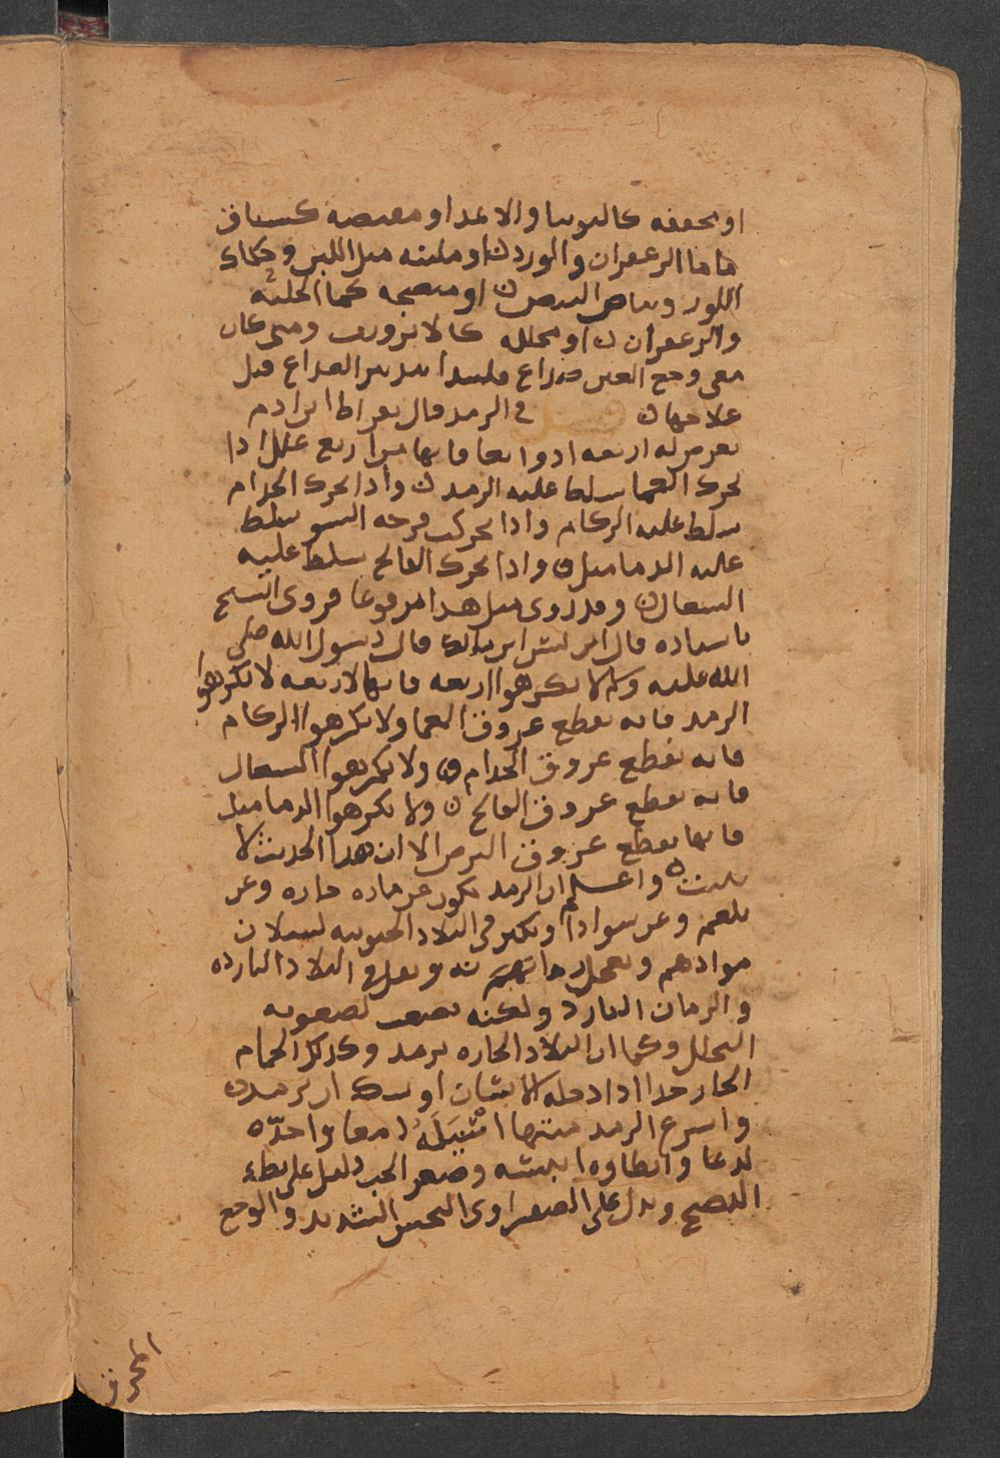 او مجففه كالتوتيا والاثمد او مقبضه كشياف
ماميثا الزعفران والورد ن او ملينه مثل اللبن وحكاك
اللوز وبياض البيض ن او منضجه كما الحلبه
والزعفران ن او محلله كالانزروت ومتى كان
مع وجع العين صداع فليبدا بتدبير الصداع قبل
علاجها ن فصل في الرمد قال بقراط ابن ادم
تعرض له اربعه ادوا بها فانها من اربع علل اذا
تحرك العما سلط عليه الرمد ن واذا تحرك الجذام
سلط عليه الزكام واذا تحركت قرحه السو سلط
عليه الدماميل ن واذا تحرك الفالج سلط عليه
السعال ن وقد روي مثل هذا مرفوعا فروى الشيخ
باسناده قال انس بن مالك قال رسول الله صلى
الله عليه وسلم لا تكرهوا اربعه فانها لاربعه لا تكرهوا
الرمد فانه يقطع عروق العما ولا تكرهوا الزكام
فانه يقطع عروق الجذام ن ولا تكرهوا السعال
فانه يقطع عروق الفالج ن ولا تكرهوا الدماميل
فانها تقطع عروق البرص الا ان هذا الحديث لا
يثبت ن واعلم ان الرمد يكون عن ماده حاره وعن
بلغم وعن سودا ويكثر في البلاد الجنوبيه لسيلان
موادهم وتحلل ويقل في البلاد البارده
والزمان البارد ولكنه يصعب لصعوبه
التحلل وكما ان البلاد الحاره ترمد وكذلك الحمام
الحار جدا اذا دخله الانسان اوشك ان يرمد ن
واسرع الرمد منتها اسيله دمعا واحده
لذعا وابطاوه ايبسه وصغر الحب دليل على بطء
النضج ويدل على الصفراوي النخس الشديد والوجع
المحرق